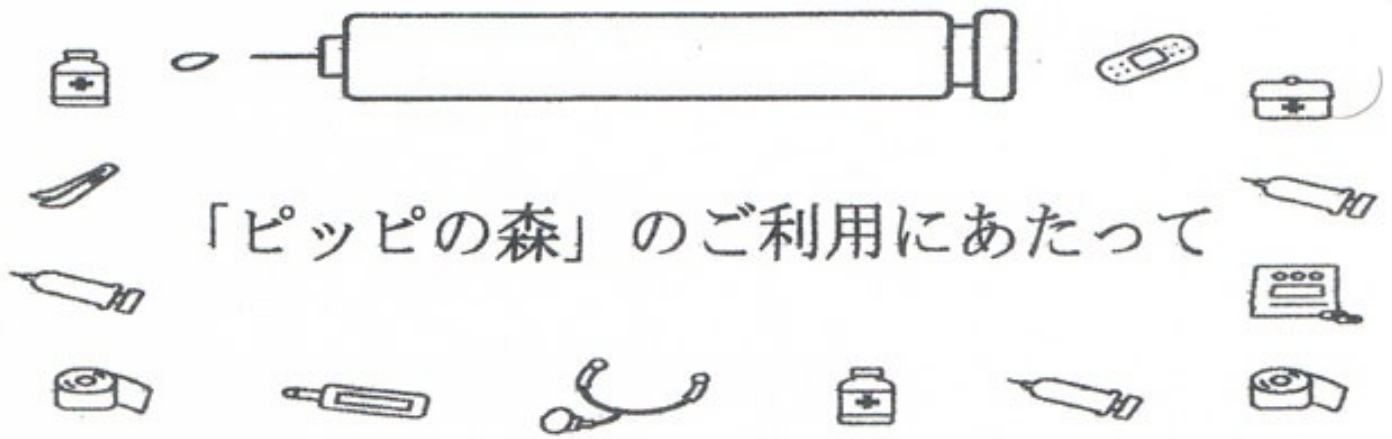 「ピッピの森」のご利用にあたって